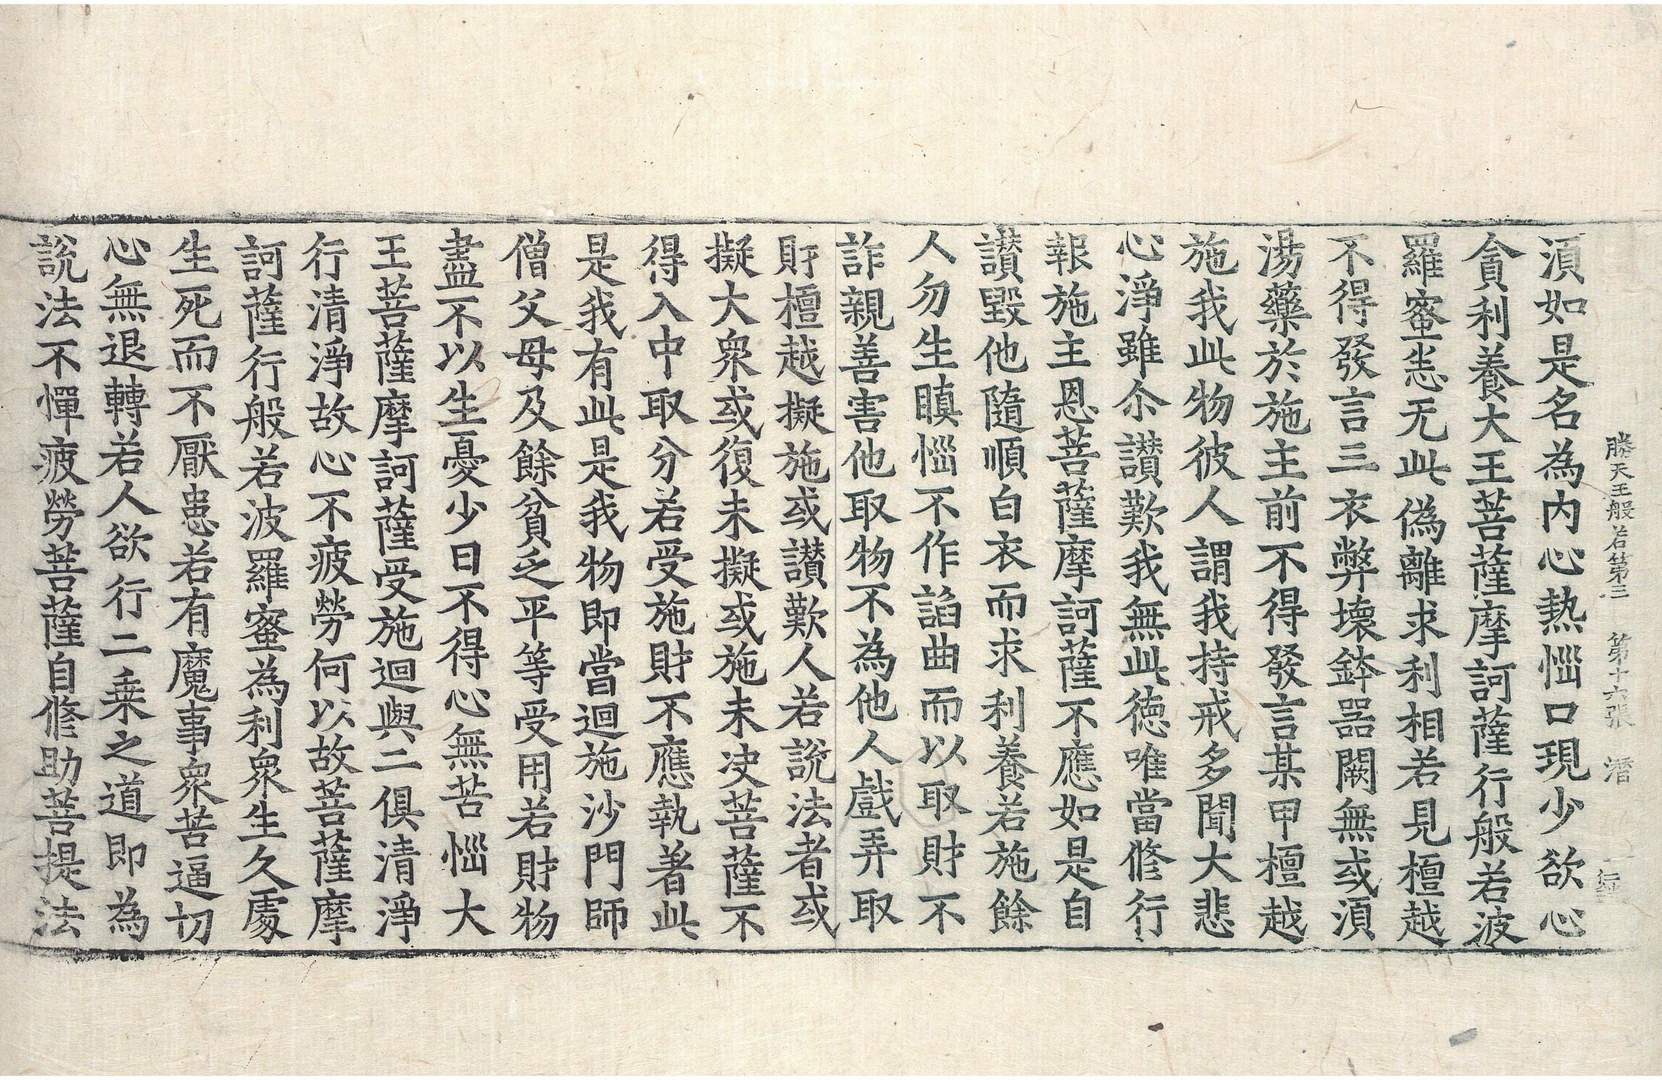 勝天王般若第三　第十六張　潛
湏如是名為内心熱惱口現少欲心
貪利養大王菩薩摩訶薩行般若波
羅蜜悉无此偽離求利相若見檀越
不得發言三衣弊壊鉢噐闕無或湏
湯藥於施主前不得發言某甲檀越
施我此物彼人謂我持戒多聞大悲
心淨雖尒讃歎我無此徳唯當脩行
報施主恩菩薩摩訶薩不應如是自
讃毀他隨順白衣而求利養若施餘
人勿生瞋惱不作諂曲而以取財不
詐親善害他取物不為他人戲弄取
財檀越擬施或讃歎人若說法者或
擬大衆或復未擬或施未决菩薩不
得入中取分若受施財不應執著此
是我有此是我物即當迴施沙門師
僧父母及餘貧乏平等受用若財物
盡不以生憂少日不得心無苦惱大
王菩薩摩訶薩受施迴與二俱清淨
行清淨故心不疲勞何以故菩薩摩
訶薩行般若波羅蜜為利衆生久處
生死而不厭患若有魔事衆苦逼切
心無退轉若人欲行二乗之道即為
說法不憚疲勞菩薩自脩助菩提法